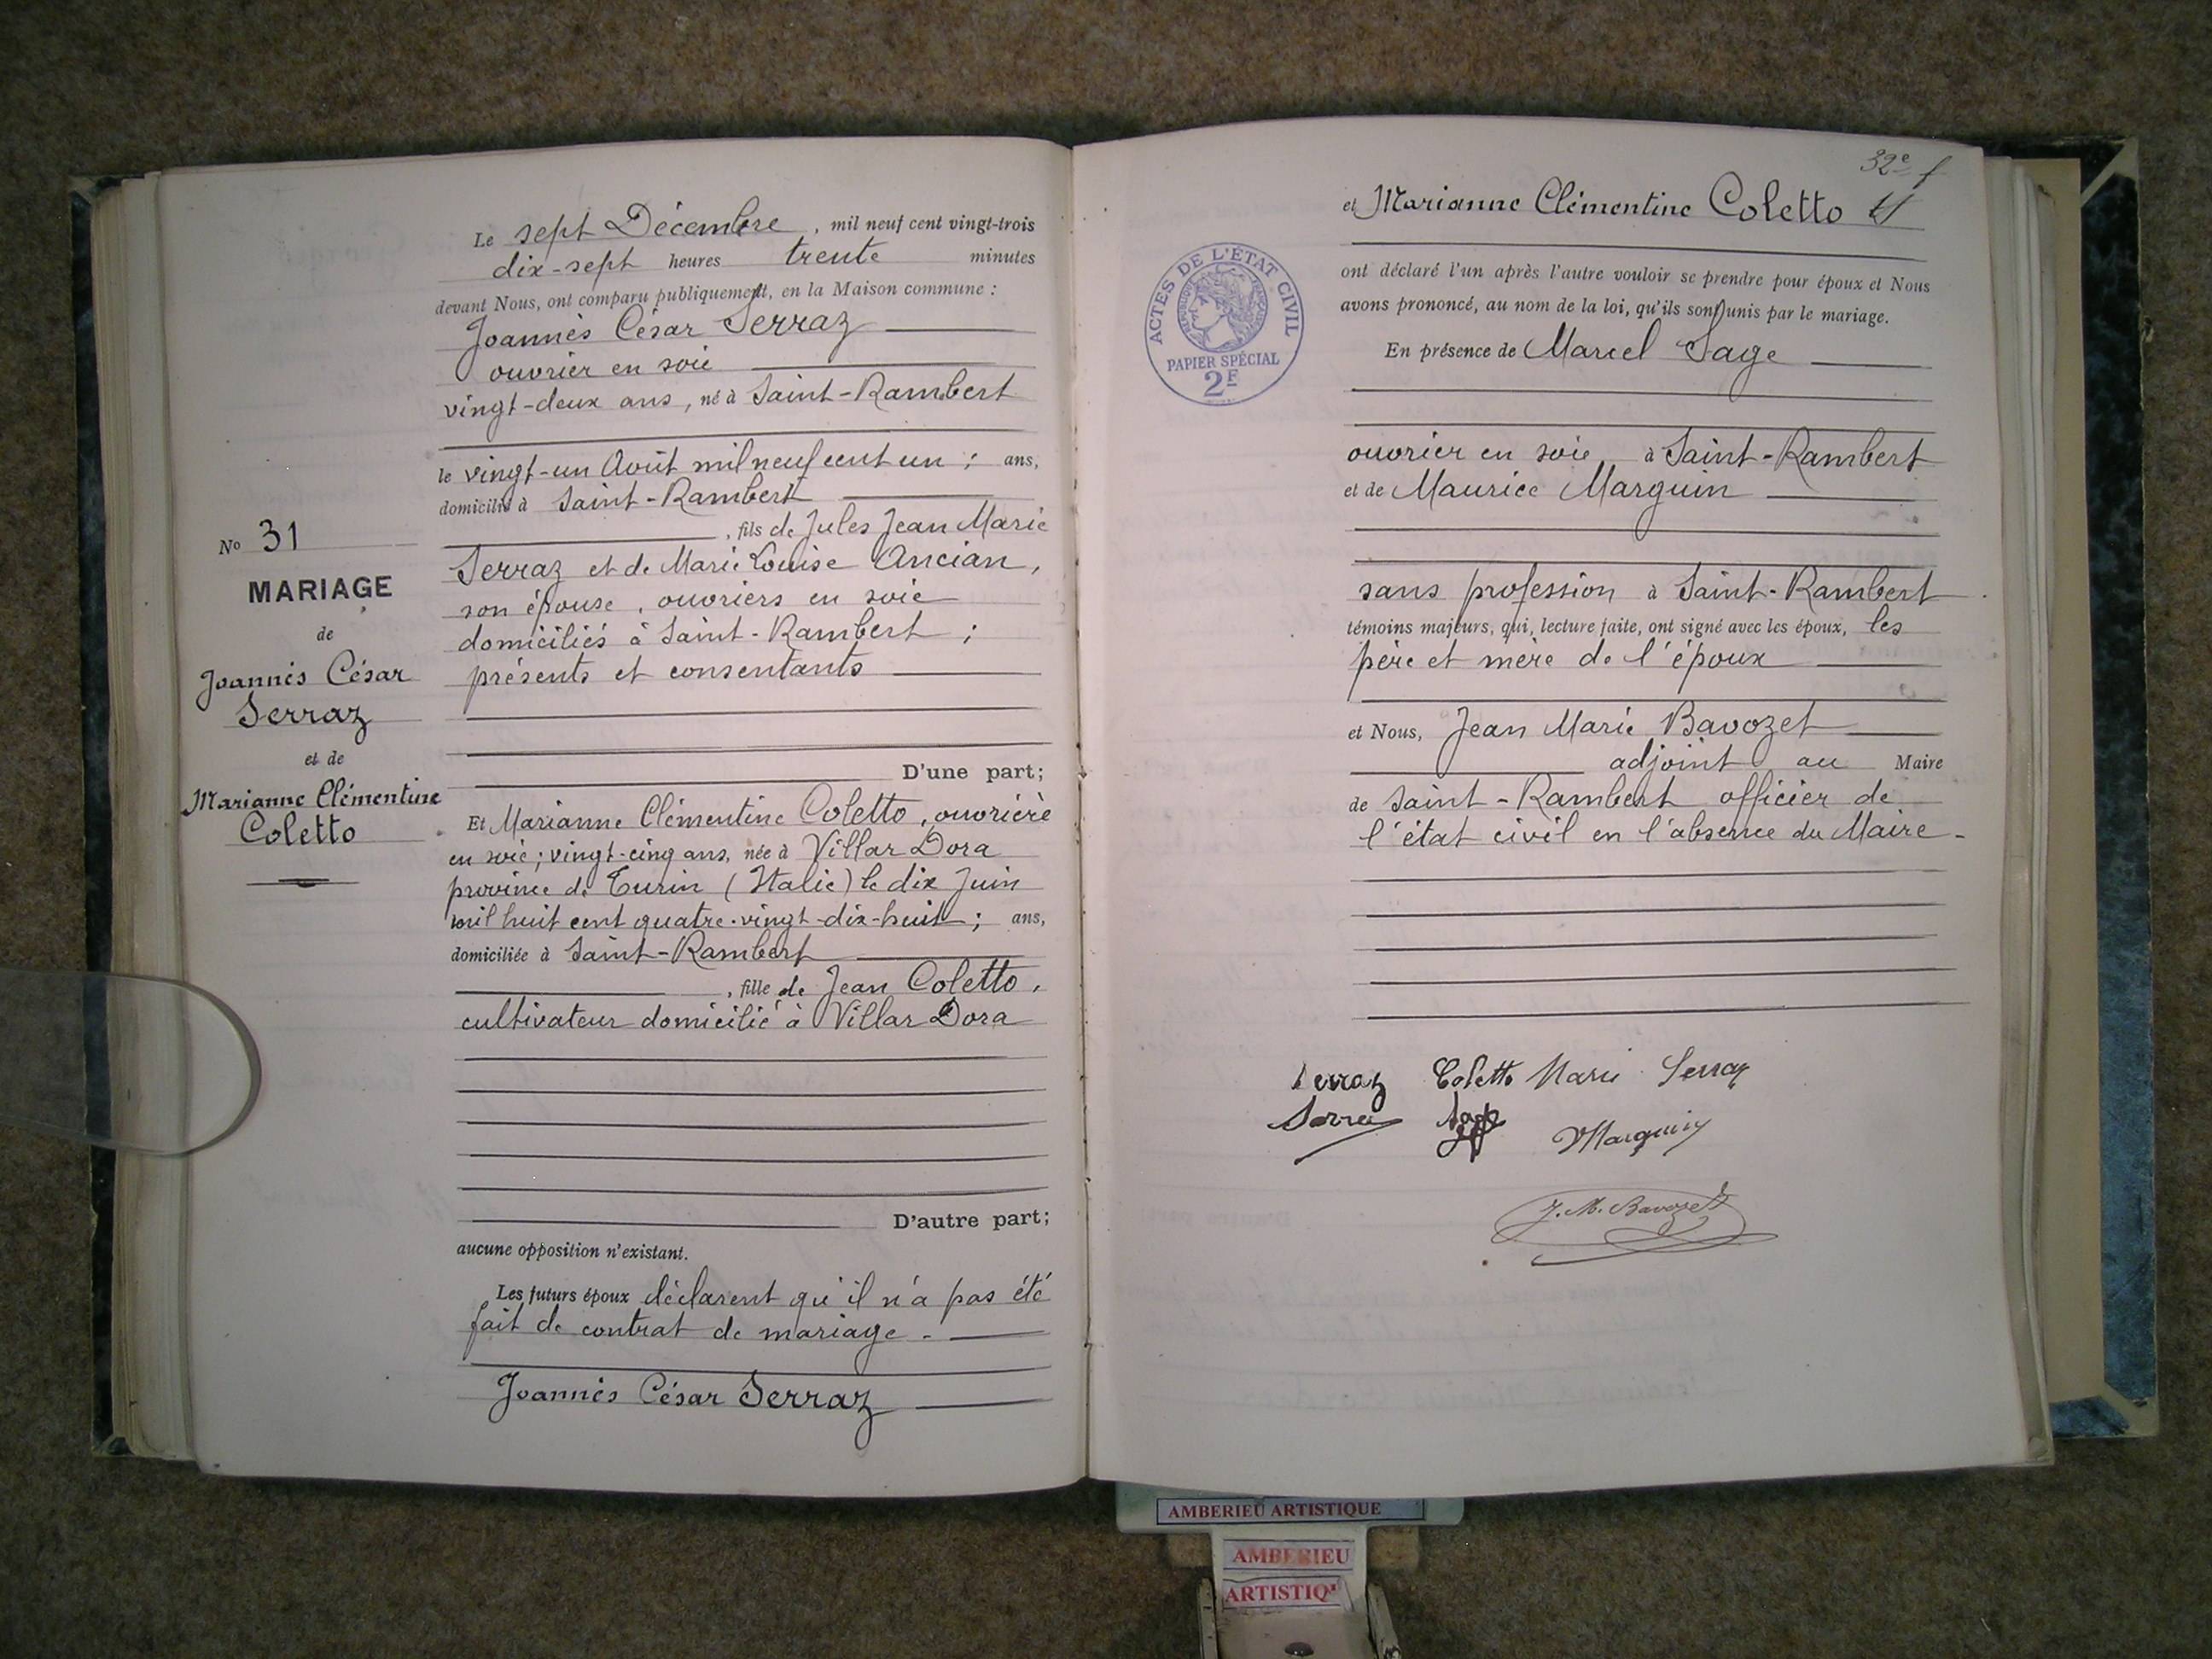 No 31
MARIAGE
de
Joannès César
Serraz
et de
Marianne Clémentine
Coletto
Le sept Décembre, mil neuf cent vingt-trois
dix-sept heures trente minutes
devant Nous, ont comparu publiquement, en la Maison commune :
Joannès César Serraz
ouvrier en soie
vingt-deux ans, né à Saint-Rambert
le vingt-un Août mil neuf cent un ; ans,
domicilié à Saint-Rambert
, fils de Jules Jean Marie
Serraz et de Marie Louise Ancian,
son épouse, ouvriers en soie
domiciliés à Saint-Rambert ;
présents et consentants
D'une part;
Et Marianne Clémentine Coletto, ouvrière
en soie ; vingt-cinq ans, née à Villar Dora
province de Turin (Italie) le dix Juin
mil huit cent quatre-vingt-dix-huit ; ans,
domiciliée à Saint-Rambert
, fille de Jean Coletto,
cultivateur domicilié à Villar Dora
D'autre part;
aucune opposition n'existant.
Les futurs époux déclarent qu'il n'a pas été
fait de contrat de mariage.
Joannès César Serraz
32e f
et Marianne Clémentine Coletto
ont déclaré l'un après l'autre vouloir se prendre pour époux et Nous
avons prononcé, au nom de la loi, qu'ils sont unis par le mariage.
En présence de Marcel Sage
ouvrier en soie, à Saint-Rambert
et de Maurice Marguin
sans profession à Saint-Rambert
témoins majeurs, qui, lecture faite, ont signé avec les époux, les
père et mère de l'époux
et Nous, Jean Marie Bavozet
adjoint au Maire
de Saint-Rambert officier de
l'état civil en l'absence du Maire.
Serraz Coletto Marie Serraz
Serraz Sage Marguin
J. M. Bavozet
ACTES DE L'ÉTAT CIVIL
RÉPUBLIQUE FRANÇAISE
PAPIER SPÉCIAL
2F
AMBERIEU ARTISTIQUE
AMBERIEU
ARTISTIQ